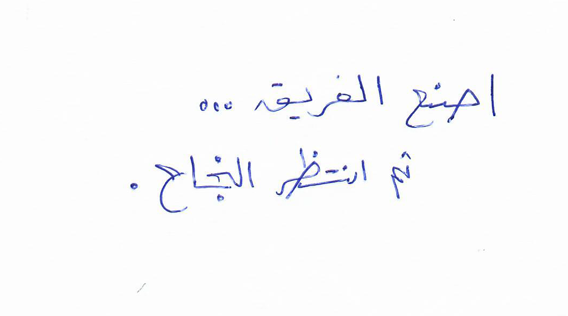 اصنع الفريق ...
ثم انتظر النجاح .